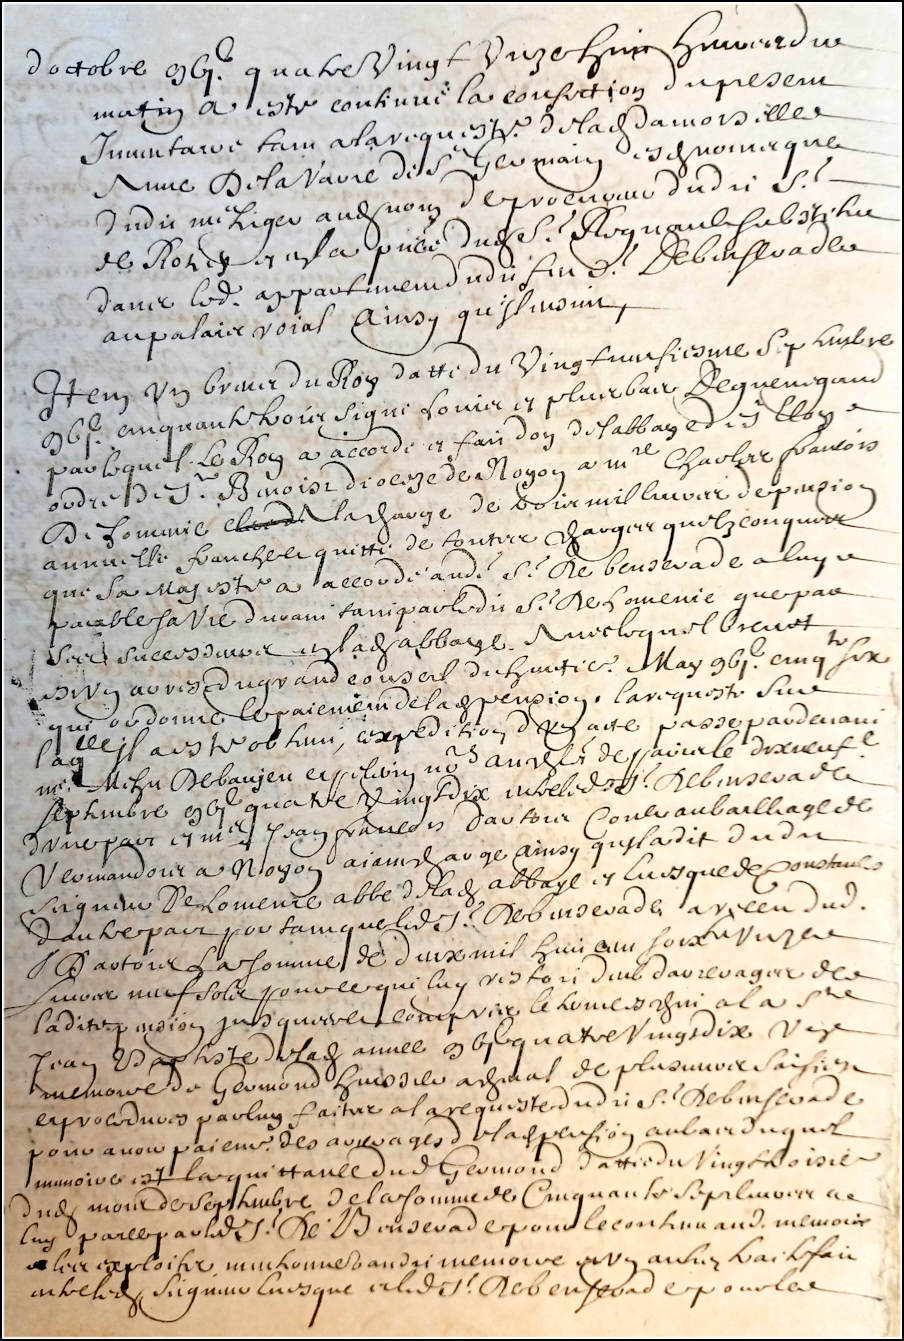 d'octobre gbjc. quatre Vingt Unze huit heures du
matin a esté continué la confection du present
Inventaire tant a la requeste de lad damoiselle
Anne De la Vavre de St Germain esd noms que
dudit me Liger aud nom de procureur dudit Sr.
de Rohez et en la pnce dud Sr. Regnault substitut
dans led. appartement dudit feu Sr. De benserade
au palais roial Ainsy quil ensuit,
Item Un brevet du Roy datté du Vingt uniesme Septembre
gbjc. cinquante trois signé Louis et plus bas De guenegaud
par lequel Le Roy a accordé et fait don de l'abbaye de St Eloy
ordre De St. Benoist dioceze de Noyon a mre Charles François
De Lomenie a la charge de trois mil livres de pension
annuelle franche et quitte de toutes charges quelzconques
que Sa Majesté a accordé aud. Sr. De benserade a luy
paiable sa Vie durant tant par ledit Sr. De Lomenie que par
ses successeurs en lad abbaye. Avec lequel brevet
est Un arrest du grand conseil du huitie. May gbjc. cinqte six
qui ordonne le paiement de lad pension. la requeste sur
laqlle Il a esté obtenu, expedition d'Un acte passé pardevant
me. De baujeu et son nores au chlet de paris le dix neufe
Septembre gbjc quatre Vingt dix entre led Sr. De benserade
d'une part et me Jean François Dartois Conser au bailliage de
Vermandois a Noyon aiant charge Ainsy quil a dit dudit
Seigneur De Lomenie abbé de lad abbaye et Evesque de Coutances
d'autre part portant que led Sr. De benserade a receu dud.
Sr Dartois La somme de deux mil huit cens soixte Unze
livres neuf solz pour ce qui luy restoit deub d'arrerages de
ladite pension jusques et compris le terme escheu a la St
Jean Baptiste de lad année gbjc quatre Vingt dix Un
memoire de Germond huissier de plusieurs saisies
et procedures par luy faites a la requeste dudit Sr. De benserade
pour avoir paieme. des arrerages de lad pension au bas duquel
memoire est la quittance dud Germond dattée du Vingt troisie
dud mois de Septembre De la somme de Cinquante sept livres a
luy paiée par led Sr. De Benserade pour le contenu aud. memoire
et les exploits mentionnez audit memoire et Un autre traité fait
entre led Seigneur Evesque et led Sr. De benserade pour les